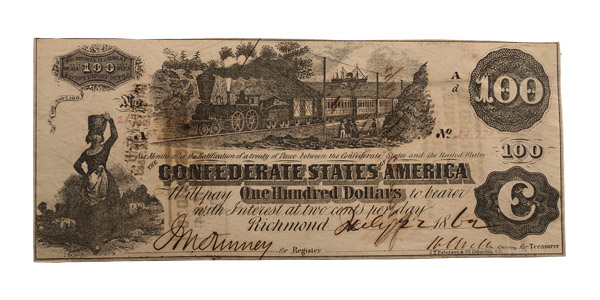 100
A
d
100
No
A
No
Six Months after the Ratification of a treaty of Peace between the Confederate States and the United States
100
CONFEDERATE STATES OF AMERICA
Will pay One Hundred Dollars to bearer
with Interest at two cents per day
C
Richmond July 22 1862
for Register
for Treasurer